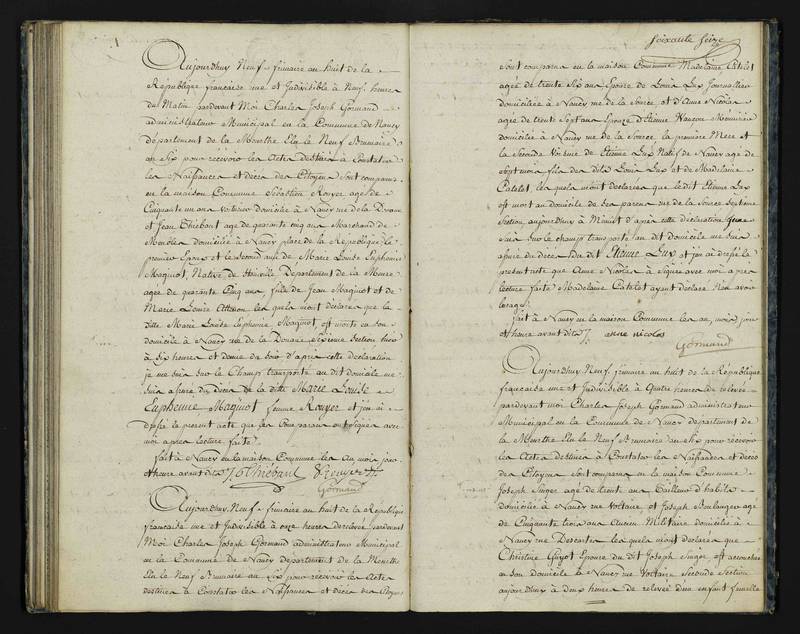 Aujourdhuy Neuf frimaire an huit de la
République francaise une et Indivisible à Neuf heures
du Matin pardevant Moi Charles Joseph Gormand
administrateur Municipal en la Commune de Nancy
département de la Meurthe Elu le Neuf Brumaire
an Six pour recevoir les Actes destinés à Constater
les Naissances et deces des Citoyens Sont comparus
en la maison Commune Sébastien Rouyer agé de
Cinquante un ans voiturier domicilié à Nancy rue de la Douane
et Jean Thiébaut agé de quarante cinq ans Marchand de
Meubles domicilié à Nancy place de la République, le
premier Epoux et le Second ami de Marie Louise Euphemie
Maquiot Native de Département de la Meuse
agée de quarante Cinq ans fille de Jean Maquiot et de
Marie Louise les quels m'ont déclarés que la
ditte Marie Louise Euphemie Maquiot, est morte en son
domicile à Nancy rue de la Douane Sixieme Section hier
à Six heures et demie du Soir d'après cette déclaration
je me suis sur le Champ transporté au dit domicile me
suis assuré du Deces de la ditte Marie Louise
Euphemie Maquiot femme Rouyer et j'en ai
dressé le present acte que les Comparans ont signés avec
moi apres Lecture faite
fait à Nancy en la maison Commune les An mois jour
et heure avant dits J Thiébaut S Rouyer
Gormand
Aujourdhuy Neuf frimaire an huit de la République
francaise une et Indivisible à onze heures de relevée pardevant
Moi Charles Joseph Gormand administrateur Municipal
en la Commune de Nancy département de la Meurthe
Elu le Neuf Brumaire an Six pour recevoir les Actes
destinés à Constater les Naissances et deces des Citoyens
soixante seize
sont comparus en la maison Commune Madelaine Catelet
agée de trente Six ans Epouse de Louis Lux Journallier
domiciliée à Nancy rue de la Source et d'Anne Nicolas
agée de trente Sept ans Epouse d'Etienne Menuisier
domiciliée à Nancy rue de la Source, la première Mere et
la Seconde Voisine de Etienne Lux Natif de Nancy agé de
Sept mois fils des dits Louis Lux et de Madelaine
Catelet les quels m'ont déclarées que le dit Etienne Lux
est mort au domicile de ses parens rue de la Source Septieme
Section aujourdhuy à Minuit d'après cette déclaration je me
suis sur le champ transporté au dit domicile me suis
assuré du décès du dit Etienne Lux et j'en ai dressé le
présent acte que Anne Nicolas à signée avec moi apres
lecture faite Madelaine Catelet ayant déclaré Ne savoir
l'usage
fait à Nancy en la maison Commune les an, mois jour
et heure avant dits anne nicolas
Gormand
Aujourdhuy Neuf frimaire an huit de la République
francaise une et Indivisible à Quatre heures de relevée
pardevant moi Charles Joseph Gormand administrateur
Municipal en la Commune de Nancy département de
la Meurthe Elu le Neuf Brumaire an six pour recevoir
les Actes destinés à Constater les Naissances et deces
des Citoyens sont comparus en la maison Commune
Joseph Singer agé de trente ans Tailleur d'habits
domicilié à Nancy rue Voltaire, et Joseph Boulanger agé
de Cinquante trois ans ancien Militaire domicilié à
Nancy rue Descartes les quels m'ont déclarés que
Christine Guyot Epouse du dit Joseph Singer est accouchée
en son domicile à Nancy rue Voltaire Seconde Section
aujourdhuy à deux heures de relevée d'un enfant femelle